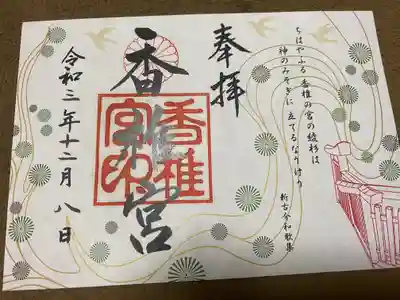 奉拝
ちはやふる 香椎の宮の綾杉は
神のみそぎに 立てるなりけり
新古今和歌集
香椎宮
香椎
宮印
令和三年十二月八日